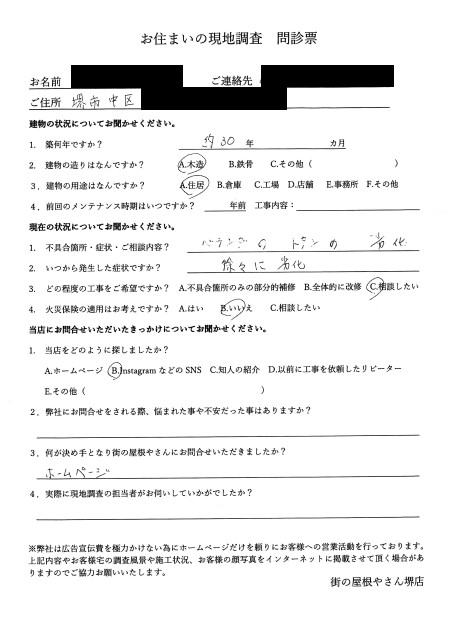 お住まいの現地調査　問診票
お名前　ご連絡先（
ご住所　堺市中区
建物の状況についてお聞かせください。
1.　築何年ですか？　約30　年　カ月
2.　建物の造りはなんですか？　A.木造　B.鉄骨　C.その他（　）
3．建物の用途はなんですか？　A.住居　B.倉庫　C.工場　D.店舗　E.事務所　F.その他
4．前回のメンテナンス時期はいつですか？　年前　工事内容：
現在の状況についてお聞かせください。
1.　不具合箇所・症状・ご相談内容？　の　トタンの　劣化
2.　いつから発生した症状ですか？　徐々に　劣化
3.　どの程度の工事をご希望ですか？　A.不具合箇所のみの部分的補修　B.全体的に改修　C.相談したい
4.　火災保険の適用はお考えですか？　A.はい　B.いいえ　C.相談したい
当店にお問合せいただいたきっかけについてお聞かせください。
1.　当店をどのように探しましたか？
A.ホームページ　B.Instagram などの SNS　C.知人の紹介　D.以前に工事を依頼したリピーター
E.その他（　）
2．弊社にお問合せをされる際、悩まれた事や不安だった事はありますか？
3．何が決め手となり街の屋根やさんにお問合せいただきましたか？
ホームページ
4．実際に現地調査の担当者がお伺いしていかがでしたか？
※弊社は広告宣伝費を極力かけない為にホームページだけを頼りにお客様への営業活動を行っております。
上記内容やお客様宅の調査風景や施工状況、お客様の顔写真をインターネットに掲載させて頂く場合があ
りますのでご協力お願いいたします。
街の屋根やさん堺店